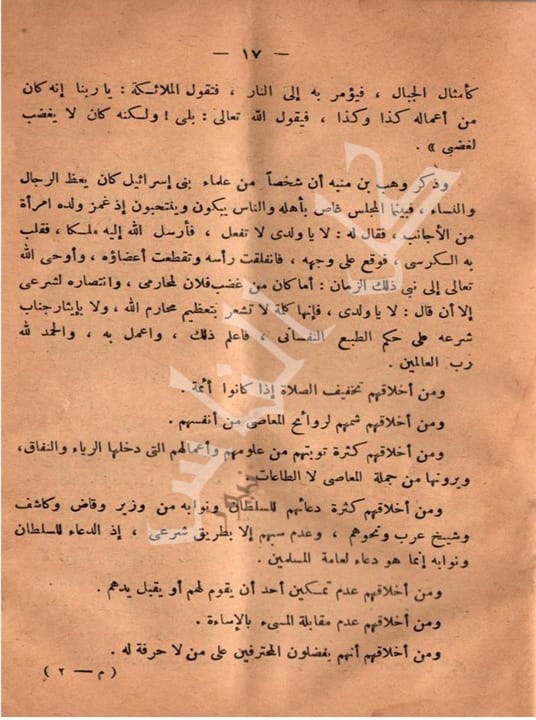 — ١٧ —
كأمثال الجبال ، فيؤمر به إلى النار ، فتقول الملائكة : يا ربنا إنه كان
من أعماله كذا وكذا ، فيقول الله تعالى : بلى ! ولكنه كان لا يغضب
لغضبى » .
وذكر وهب بن منبه أن شخصاً من علماء بنى إسرائيل كان يعظ الرجال
والنساء ، فبينما المجلس غاص بأهله والناس يبكون وينتحبون إذ غمز ولده امرأة
من الأجانب ، فقال له : لا يا ولدى لا تفعل ، فأرسل الله إليه ملكا ، فقلب
به الكرسى ، فوقع على وجهه ، فانفلقت رأسه وتقطعت أعضاؤه ، وأوحى الله
تعالى إلى نبى ذلك الزمان : أما كان من غضب فلان لمحارمى ، وانتصاره لشرعى
إلا أن قال : لا يا ولدى ، فإنها كلمة لا تشعر بتعظيم محارم الله ، ولا بإيثار جناب
شرعه على حكم الطبع النفسانى ، فاعلم ذلك ، واعمل به ، والحمد لله
رب العالمين .
ومن أخلاقهم تخفيف الصلاة إذا كانوا أئمة .
ومن أخلاقهم شمهم لروائح المعاصى من أنفسهم .
ومن أخلاقهم كثرة توبتهم من علومهم وأعمالهم التى دخلها الرياء والنفاق ،
ويرونها من جملة المعاصى لا الطاعات .
ومن أخلاقهم كثرة دعائهم للسلطان ونوابه من وزير وقاض وكاشف
وشيخ عرب ونحوهم ، وعدم سبهم إلا بطريق شرعى ، إذ الدعاء للسلطان
ونوابه إنما هو دعاء لعامة المسلمين .
ومن أخلاقهم عدم تمكين أحد أن يقوم لهم أو يقبل يدهم .
ومن أخلاقهم عدم مقابلة المسىء بالإساءة .
ومن أخلاقهم أنهم يفضلون المحترفين على من لا حرفة له .
( م — ٢ )